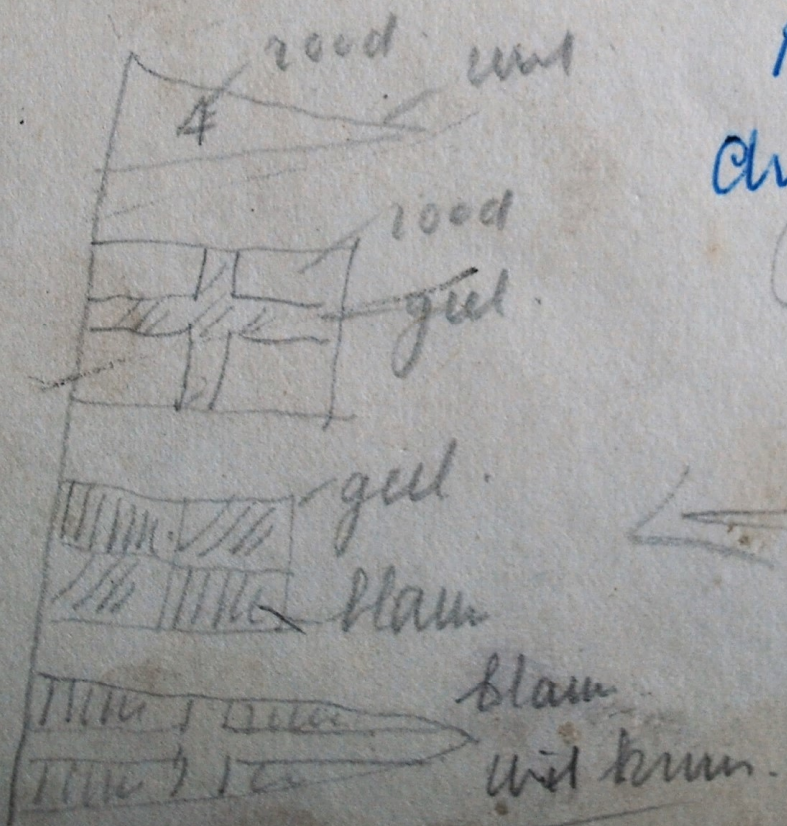 rood
wit
4
rood
geel.
geel.
blauw
blauw
wit kruis.